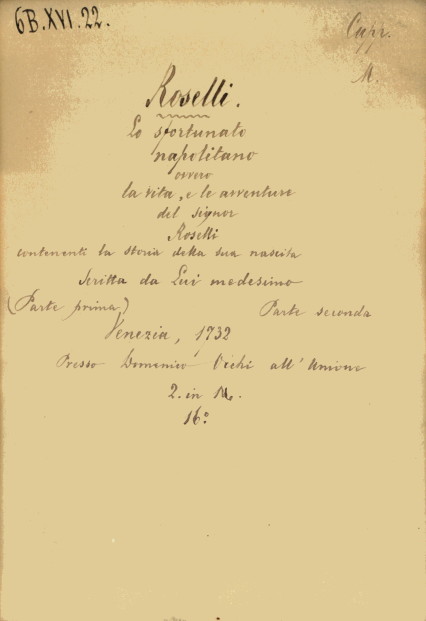 6B.XVI.22.
Capp.
M.
Roselli.
Lo sfortunato
napolitano
ovvero
la vita, e le avventure
del signor
Roselli
contenenti la storia della sua nascita
Scritta da Lui medesimo
(Parte prima) Parte seconda
Venezia, 1732
Presso Domenico Occhi all' Unione
2. in
16º